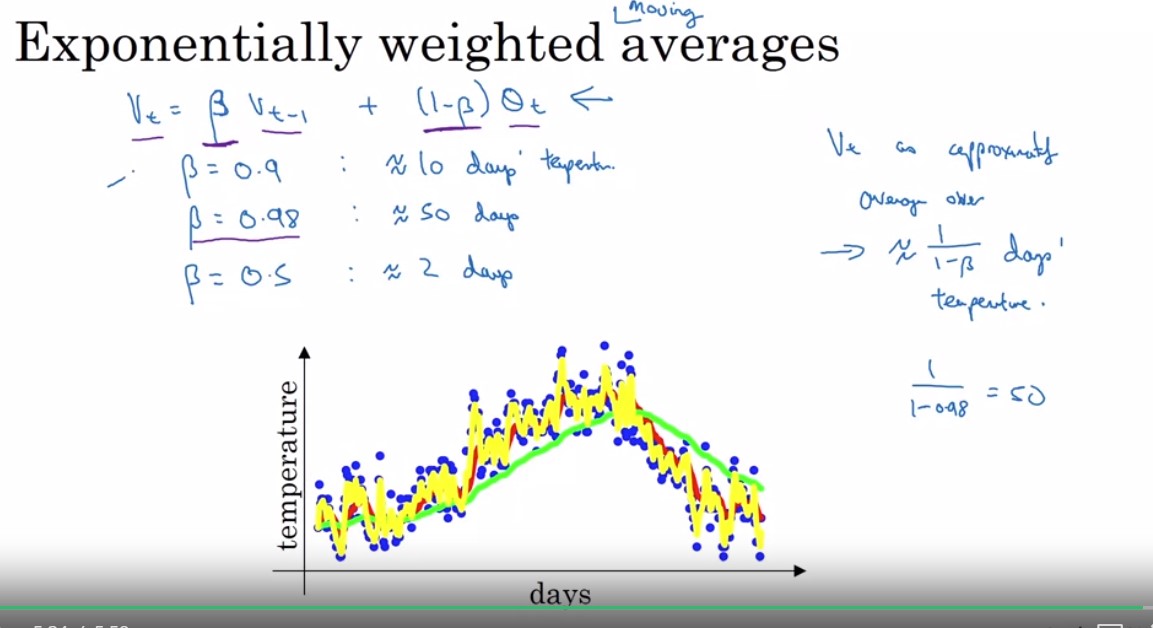 Moving
Exponentially weighted averages
Vt = β Vt-1 + (1-β) θt ←
β = 0.9 : ≈ 10 days' temperatur.
β = 0.98 : ≈ 50 days
β = 0.5 : ≈ 2 days
Vt as approximately
average over
→ ≈ 1/(1-β) days'
temperature.
1/(1-0.98) = 50
temperature
days